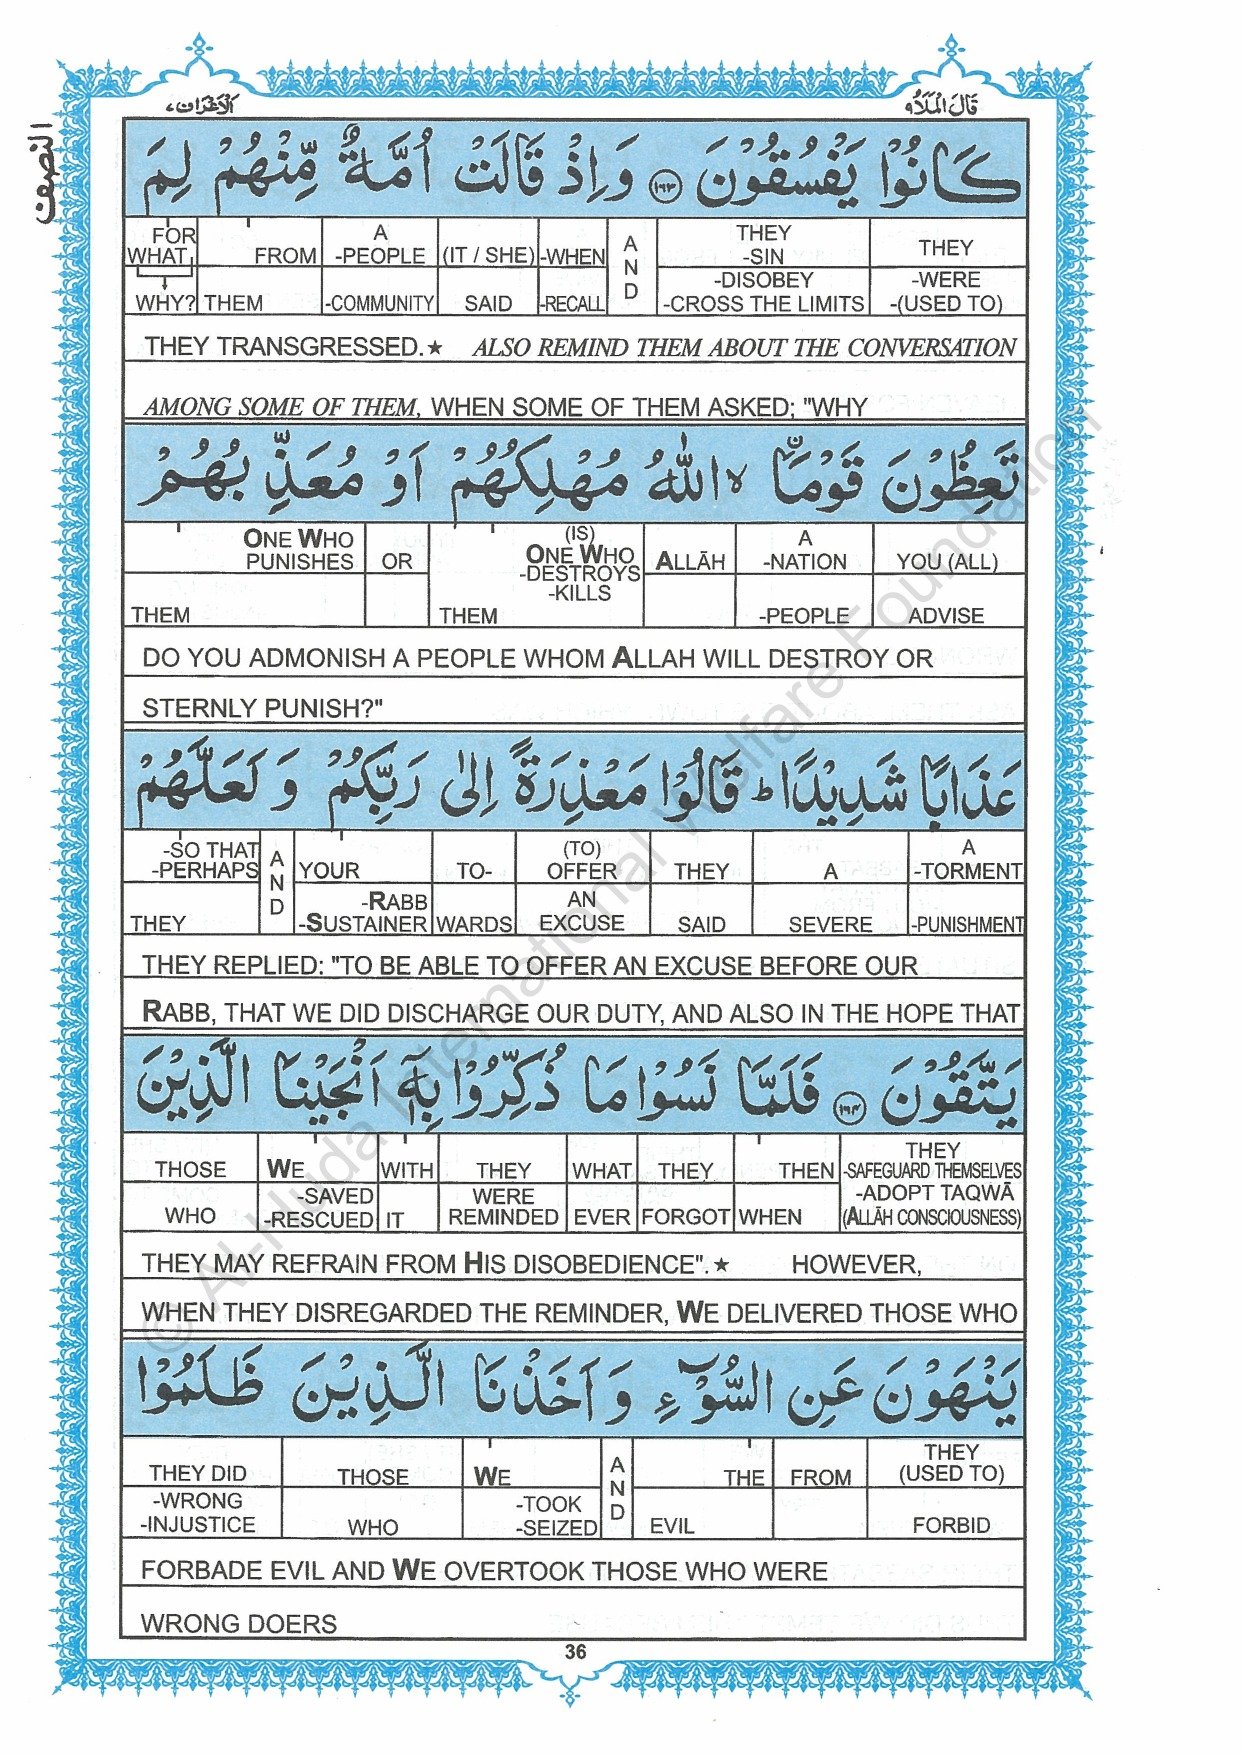 قَالَ الْمَلَاُ ٩ الْاَعْرَاف ٧
النصف
كَانُوْا يَفْسُقُوْنَ ١٦٣ وَ اِذْ قَالَتْ اُمَّةٌ مِّنْهُمْ لِمَ
FOR WHAT WHY? FROM THEM A -PEOPLE -COMMUNITY (IT / SHE) SAID -WHEN -RECALL AND THEY -SIN -DISOBEY -CROSS THE LIMITS THEY -WERE -(USED TO)
THEY TRANSGRESSED.★ ALSO REMIND THEM ABOUT THE CONVERSATION
AMONG SOME OF THEM, WHEN SOME OF THEM ASKED; "WHY
تَعِظُوْنَ قَوْمَاۨ ۙ اللّٰهُ مُهْلِكُهُمْ اَوْ مُعَذِّبُهُمْ
ONE WHO PUNISHES THEM OR (IS) ONE WHO -DESTROYS -KILLS THEM ALLĀH A -NATION -PEOPLE YOU (ALL) ADVISE
DO YOU ADMONISH A PEOPLE WHOM ALLAH WILL DESTROY OR
STERNLY PUNISH?"
عَذَابًا شَدِيْدًا ؕ قَالُوْا مَعْذِرَةً اِلٰى رَبِّكُمْ وَ لَعَلَّهُمْ
-SO THAT -PERHAPS THEY AND YOUR -RABB -SUSTAINER TO- WARDS (TO) OFFER AN EXCUSE THEY SAID A SEVERE A -TORMENT -PUNISHMENT
THEY REPLIED: "TO BE ABLE TO OFFER AN EXCUSE BEFORE OUR
RABB, THAT WE DID DISCHARGE OUR DUTY, AND ALSO IN THE HOPE THAT
يَتَّقُوْنَ ١٦٤ فَلَمَّا نَسُوْا مَا ذُكِّرُوْا بِهٖۤ اَنْجَيْنَا الَّذِيْنَ
THOSE WHO WE -SAVED -RESCUED WITH IT THEY WERE REMINDED WHAT EVER THEY FORGOT THEN WHEN THEY -SAFEGUARD THEMSELVES -ADOPT TAQWĀ (ALLĀH CONSCIOUSNESS)
THEY MAY REFRAIN FROM HIS DISOBEDIENCE".★ HOWEVER,
WHEN THEY DISREGARDED THE REMINDER, WE DELIVERED THOSE WHO
يَنْهَوْنَ عَنِ السُّوْٓءِ وَ اَخَذْنَا الَّذِيْنَ ظَلَمُوْا
THEY DID -WRONG -INJUSTICE THOSE WHO WE -TOOK -SEIZED AND THE EVIL FROM THEY (USED TO) FORBID
FORBADE EVIL AND WE OVERTOOK THOSE WHO WERE
WRONG DOERS
36
© Al-Huda International Welfare Foundation